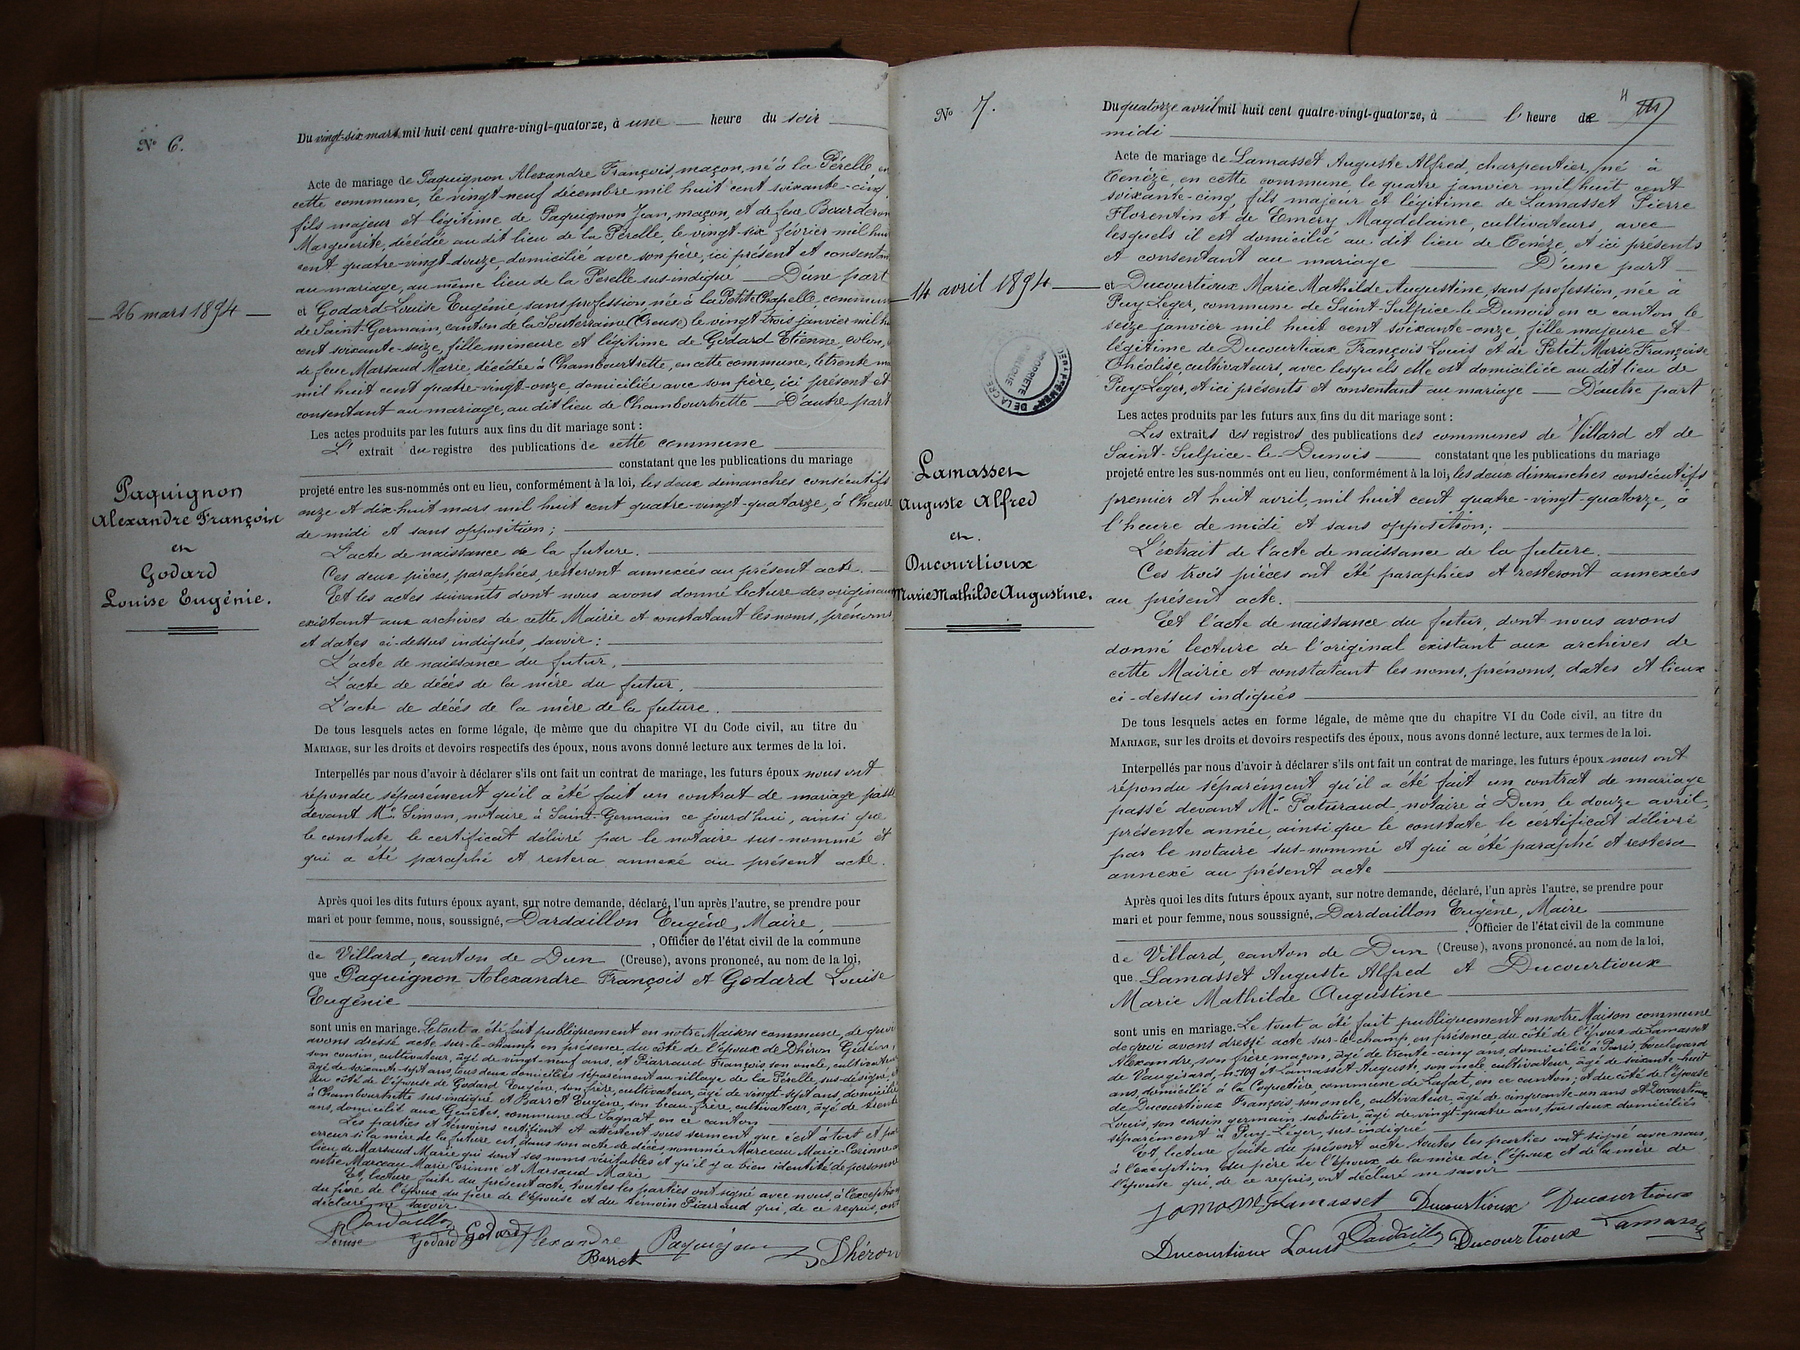 N° 6.
26 mars 1894
Paquignon
Alexandre François
et
Godard
Louise Eugénie.
Du vingt-six mars mil huit cent quatre-vingt-quatorze, à une heure du soir
Acte de mariage de Paquignon Alexandre François, maçon, né à la Pérelle, en
cette commune, le vingt neuf décembre mil huit cent soixante-cinq
fils majeur et légitime de Paquignon Jean, maçon, et de feue Bourderon
Marguerite, décédée au dit lieu de la Pérelle, le vingt-six février mil huit
cent quatre-vingt-douze, domicilié avec son père, ici présent et consentant
au mariage, au même lieu de la Pérelle sus-indiqué D'une part
et Godard Louise Eugénie sans profession née à la Petite Chapelle commune
de Saint-Germain, canton de la Souterraine (Creuse) le vingt trois janvier mil h
cent soixante-seize, fille mineure et légitime de Godard Etienne, colon,
de feue Marsaud Marie, décédée à Chambourtrette, en cette commune, le trente
mil huit cent quatre-vingt-onze domiciliée avec son père, ici présent et
consentant au mariage, au dit lieu de Chambourtrette D'autre part
Les actes produits par les futurs aux fins du dit mariage sont :
L' extrait du registre des publications de cette commune
constatant que les publications du mariage
projeté entre les sus-nommés ont eu lieu, conformément à la loi, les deux dimanches consécutifs
onze et dix-huit mars mil huit cent quatre-vingt-quatorze, à l'heure
de midi et sans opposition ;
L'acte de naissance de la future.
Ces deux pièces, paraphées, resteront annexées au présent acte.
Et les actes suivants dont nous avons donné lecture des originaux
existant aux archives de cette Mairie et constatant les noms, prénoms
et dates ci-dessus indiqués, savoir :
L'acte de naissance du futur.
L'acte de décès de la mère du futur.
L'acte de décès de la mère de la future.
De tous lesquels actes en forme légale, de même que du chapitre VI du Code civil, au titre du
MARIAGE, sur les droits et devoirs respectifs des époux, nous avons donné lecture aux termes de la loi.
Interpellés par nous d'avoir à déclarer s'ils ont fait un contrat de mariage, les futurs époux nous ont
répondu séparément qu'il a été fait un contrat de mariage passé
devant Me Simon, notaire à Saint-Germain ce jourd'hui, ainsi que
le constate le certificat délivré par le notaire sus-nommé et
qui a été paraphé et restera annexé au présent acte.
Après quoi les dits futurs époux ayant, sur notre demande, déclaré, l'un après l'autre, se prendre pour
mari et pour femme, nous, soussigné, Dardaillon Eugène, Maire,
, Officier de l'état civil de la commune
de Villard, canton de Dun (Creuse), avons prononcé, au nom de la loi,
que Paquignon Alexandre François et Godard Louise
Eugénie
sont unis en mariage. Le tout a été fait publiquement en notre Maison commune, de quoi
avons dressé acte sur-le-champ en présence, du côté de l'époux de Dhéron Gédéon,
son cousin, cultivateur, âgé de vingt-neuf ans, et Piarraud François son oncle, cultivateur
âgé de soixante-sept ans, tous deux domiciliés séparément au village de la Pérelle sus-désigné, et
du côté de l'épouse de Godard Eugène, son frère, cultivateur, âgé de vingt-sept ans, domicilié
à Chambourtrette sus-indiqué et Barret Eugène, son beau-frère, cultivateur, âgé de trente
ans, domicilié aux Genêtes, commune de Sagnat, en ce canton
Les parties et témoins certifient et attestent sous serment que c'est à tort et par
erreur si la mère de la future est, dans son acte de décès nommée Marceau Marie Corinne au
lieu de Marsaud Marie qui sont ses noms véritables et qu'il y a bien identité de personne
entre Marceau Marie Corinne et Marsaud Marie
Et, lecture faite du présent acte, toutes les parties ont signé avec nous, à l'exception
du père de l'époux, du père de l'épouse et du témoin Piarraud qui, de ce requis, ont
déclaré ne savoir
Dardaillon
Louise Godard Godard Alexandre Paquignon Dhéron
Barret
N° 7.
14 avril 1894
Lamasset
Auguste Alfred
et
Ducourtioux
Marie Mathilde Augustine.
Du quatorze avril mil huit cent quatre-vingt-quatorze, à l'heure de
midi
Acte de mariage de Lamasset Auguste Alfred, charpentier, né à
Cenèze, en cette commune, le quatre janvier mil huit cent
soixante-cinq, fils majeur et légitime de Lamasset Pierre
Florentin et de Emery Magdelaine, cultivateurs, avec
lesquels il est domicilié au dit lieu de Cenèze, et ici présents
et consentant au mariage D'une part
et Ducourtioux Marie Mathilde Augustine sans profession, née à
Puy-Leger, commune de Saint-Sulpice-le-Dunois en ce canton le
seize janvier mil huit cent soixante-onze, fille majeure et
légitime de Ducourtioux François Louis et de Petit Marie Françoise
Théolise, cultivateurs, avec lesquels elle est domiciliée au dit lieu de
Puy-Leger, et ici présents et consentant au mariage D'autre part
Les actes produits par les futurs aux fins du dit mariage sont :
Les extraits des registres des publications des communes de Villard et de
Saint-Sulpice-le-Dunois constatant que les publications du mariage
projeté entre les sus-nommés ont eu lieu, conformément à la loi, les deux dimanches consécutifs
premier et huit avril, mil huit cent quatre-vingt-quatorze, à
l'heure de midi et sans opposition ;
L'extrait de l'acte de naissance de la future.
Ces trois pièces ont été paraphées et resteront annexées
au présent acte.
Et l'acte de naissance du futur, dont nous avons
donné lecture de l'original existant aux archives de
cette Mairie et constatant les noms, prénoms, dates et lieux
ci-dessus indiqués
De tous lesquels actes en forme légale, de même que du chapitre VI du Code civil, au titre du
MARIAGE, sur les droits et devoirs respectifs des époux, nous avons donné lecture, aux termes de la loi.
Interpellés par nous d'avoir à déclarer s'ils ont fait un contrat de mariage, les futurs époux nous ont
répondu séparément qu'il a été fait un contrat de mariage
passé devant Me Paturaud notaire à Dun le douze avril,
présente année, ainsi que le constate le certificat délivré
par le notaire sus-nommé et qui a été paraphé et restera
annexé au présent acte
Après quoi les dits futurs époux ayant, sur notre demande, déclaré, l'un après l'autre, se prendre pour
mari et pour femme, nous, soussigné, Dardaillon Eugène, Maire
, Officier de l'état civil de la commune
de Villard, canton de Dun (Creuse), avons prononcé, au nom de la loi,
que Lamasset Auguste Alfred et Ducourtioux
Marie Mathilde Augustine
sont unis en mariage. Le tout a été fait publiquement en notre Maison commune
de quoi avons dressé acte sur-le-champ, en présence, du côté de l'époux de Lamasset
Alexandre, son frère maçon, âgé de trente-cinq ans, domicilié à Paris, boulevard
de Vaugirard, n° 109 et Lamasset Auguste, son oncle, cultivateur, âgé de soixante-huit
ans, domicilié à la Coquetière commune de Lafat, en ce canton ; et du côté de l'épouse
de Ducourtioux François son oncle, cultivateur, âgé de cinquante-un ans et Ducourtioux
Louis, son cousin germain, sabotier âgé de vingt-quatre ans, tous deux domiciliés
séparément à Puy-Léger, sus-indiqué
Et, lecture faite du présent acte toutes les parties ont signé avec nous,
à l'exception du père de l'époux de la mère de l'époux et de la mère de
l'épouse qui, de ce requis, ont déclaré ne savoir
Lamasset Ducourtioux Ducourtioux
Ducourtioux Louis Dardaillon Ducourtioux Lamasset